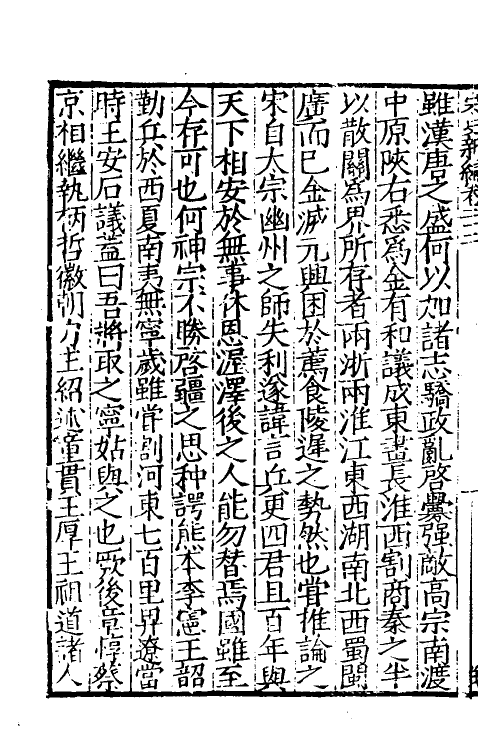 宋史新編卷二十三
雖漢唐之盛何以加諸志驕政亂啓釁强敵高宗南渡
中原陝右悉爲金有和議成東畫長淮西割商秦之半
以散關爲界所存者兩浙兩淮江東西湖南北西蜀閩
廣而已金滅元興困於薦食陵遲之勢然也嘗推論之
宋自大宗幽州之師失利遂諱言兵更四君且百年與
天下相安於無事休恩渥澤後之人能勿替焉國雖至
今存可也何神宗不勝啓疆之思种諤熊本李憲王韶
勤兵於西夏南夷無寧歲雖甞割河東七百里界遼當
時王安石議葢曰吾將取之寧姑與之也厥後章惇蔡
京相繼執柄哲徽朝力主紹述童貫王厚王祖道諸人